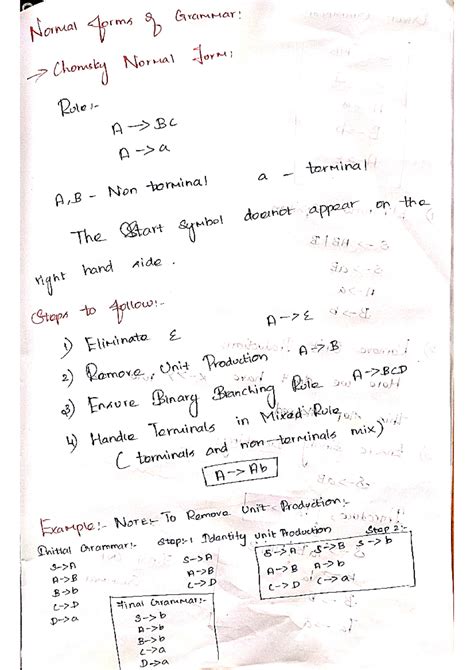 Normal forms of Grammar:
→ Chomsky Normal Form:
Rule:-
A → BC
A → a
A,B - Non terminal a - terminal
The Start symbol doesnot appear on the
right hand side.
Steps to follow:-
1) Eliminate ε A → ε
2) Remove Unit Production A → B
3) Ensure Binary Branching Rule A → BCD
4) Handle Terminals in Mixed Rule
( terminals and non-terminals mix)
A → Ab
Example:- Note:- To Remove Unit Production:-
Initial Grammar:- Step:-1 Identity unit Production Step 2:-
S → A
A → B
B → b
C → D
D → a
S → A
A → B
C → D
S → A S → B S → b
A → B A → b
C → D C → a
Final Grammar:-
S → b
A → b
B → b
C → a
D → a